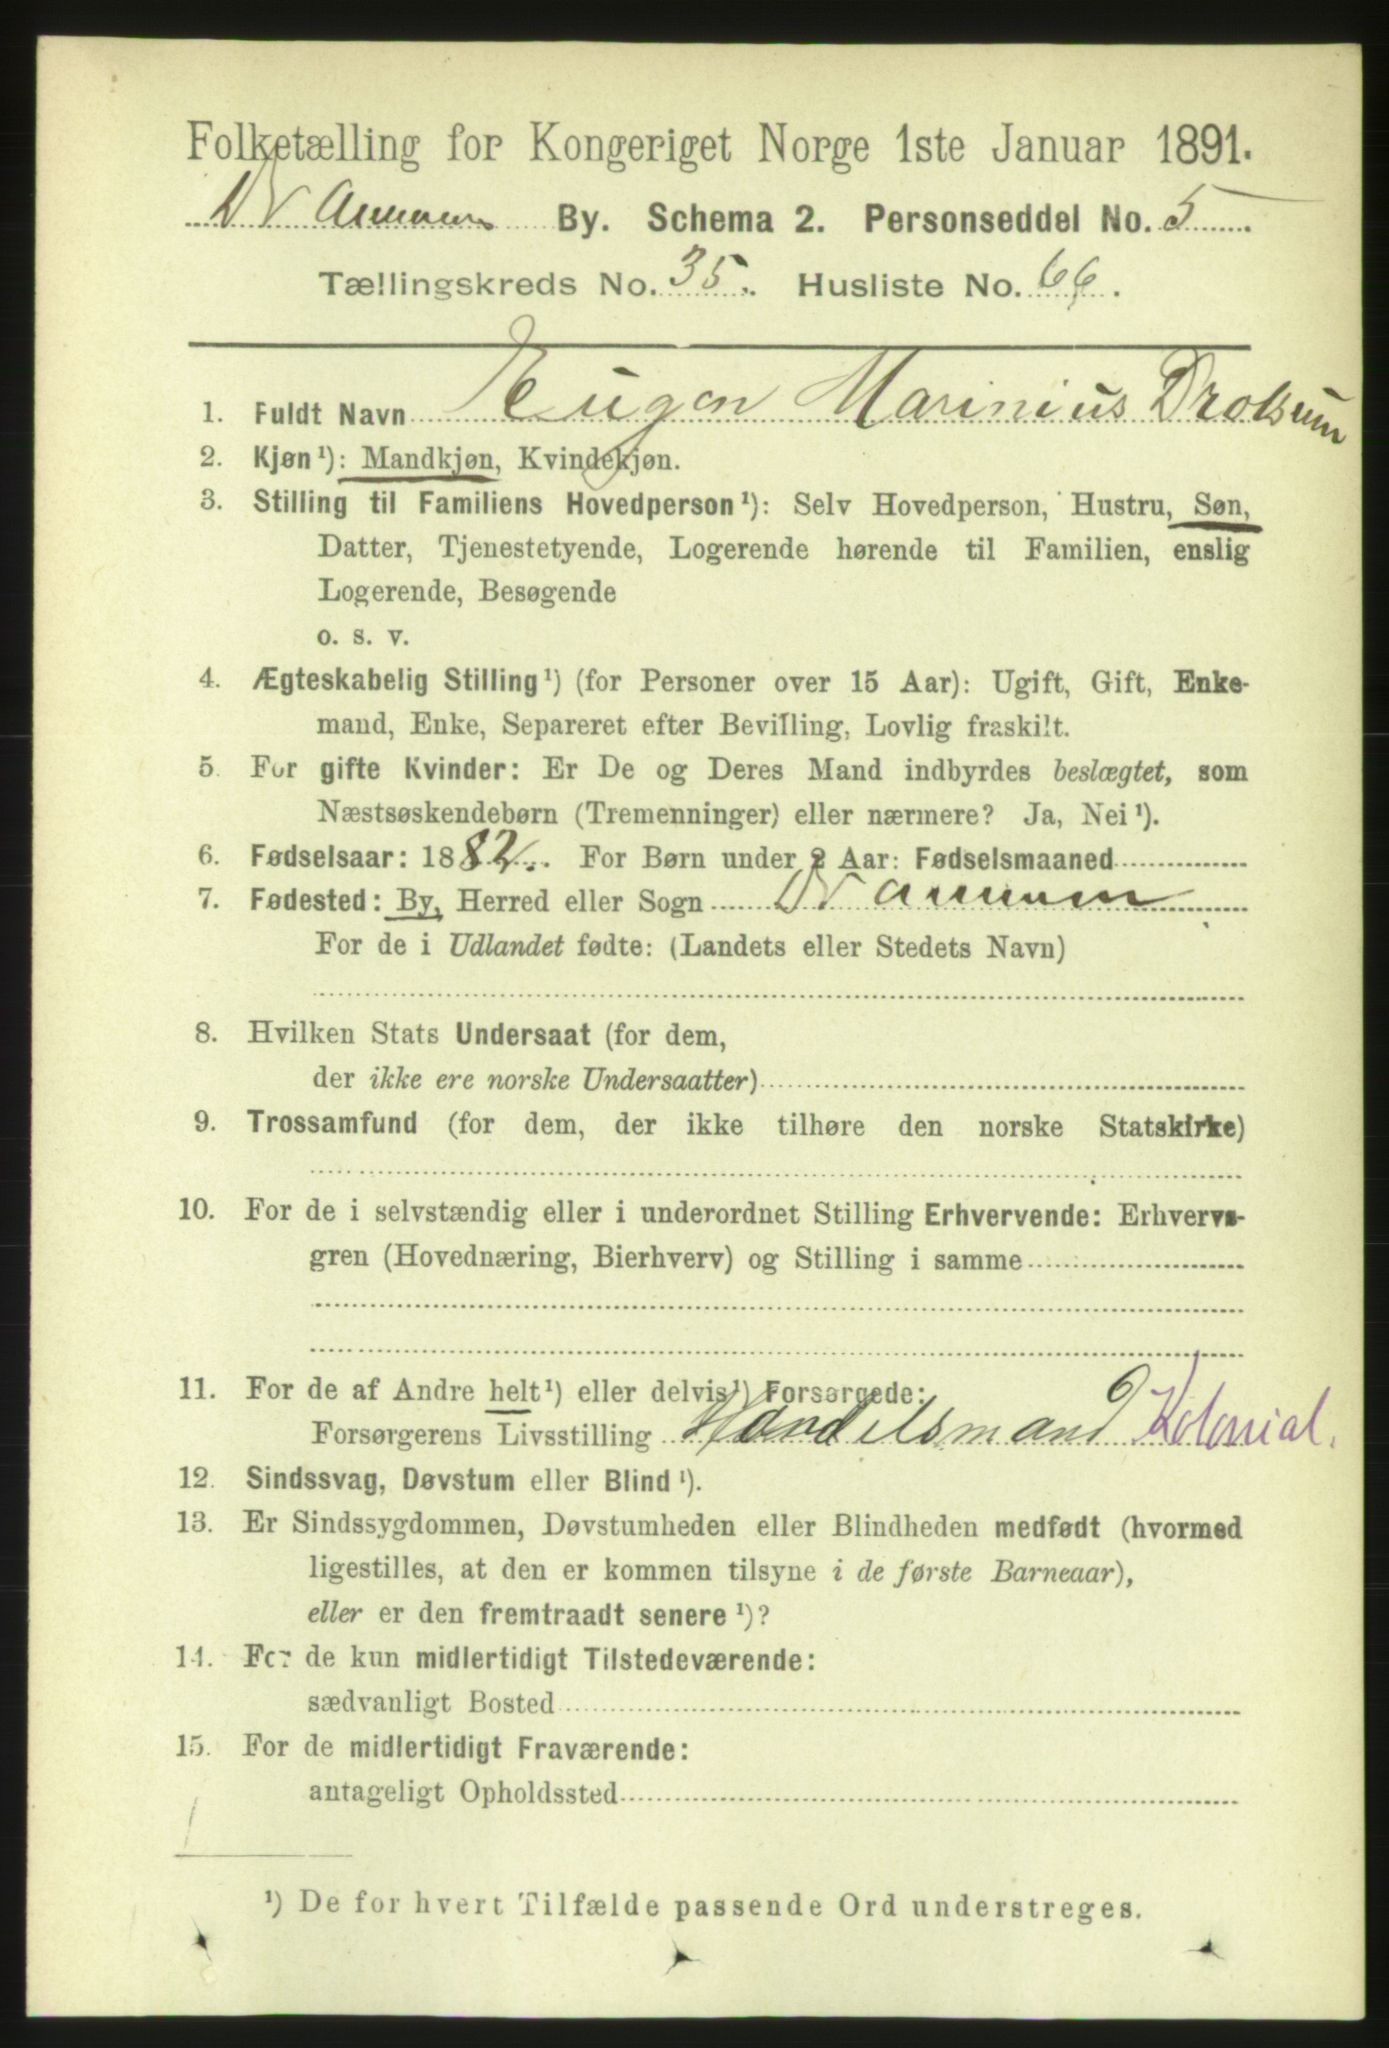 Folketælling for Kongeriget Norge 1ste Januar 1891.
Drammen By. Schema 2. Personseddel No. 5
Tællingskreds No. 35. Husliste No. 66.
1. Fuldt Navn Eugen Marinius Drolsum
2. Kjøn¹): Mandkjøn, Kvindekjøn.
3. Stilling til Familiens Hovedperson¹): Selv Hovedperson, Hustru, Søn,
Datter, Tjenestetyende, Logerende hørende til Familien, enslig
Logerende, Besøgende
o. s. v.
4. Ægteskabelig Stilling¹) (for Personer over 15 Aar): Ugift, Gift, Enke-
mand, Enke, Separeret efter Bevilling, Lovlig fraskilt.
5. For gifte Kvinder: Er De og Deres Mand indbyrdes beslægtet, som
Næstsøskendebørn (Tremenninger) eller nærmere? Ja, Nei¹).
6. Fødselsaar: 1882. For Børn under 2 Aar: Fødselsmaaned
7. Fødested: By, Herred eller Sogn Drammen
For de i Udlandet fødte: (Landets eller Stedets Navn)
8. Hvilken Stats Undersaat (for dem,
der ikke ere norske Undersaatter)
9. Trossamfund (for dem, der ikke tilhøre den norske Statskirke)
10. For de i selvstændig eller i underordnet Stilling Erhvervende: Erhvervs-
gren (Hovednæring, Bierhverv) og Stilling i samme
11. For de af Andre helt¹) eller delvis¹) Forsørgede:
Forsørgerens Livsstilling Handelsmand Kolonial.
12. Sindssvag, Døvstum eller Blind¹).
13. Er Sindssygdommen, Døvstumheden eller Blindheden medfødt (hvormed
ligestilles, at den er kommen tilsyne i de første Barneaar),
eller er den fremtraadt senere¹)?
14. For de kun midlertidigt Tilstedeværende:
sædvanligt Bosted
15. For de midlertidigt Fraværende:
antageligt Opholdssted
¹) De for hvert Tilfælde passende Ord understreges.